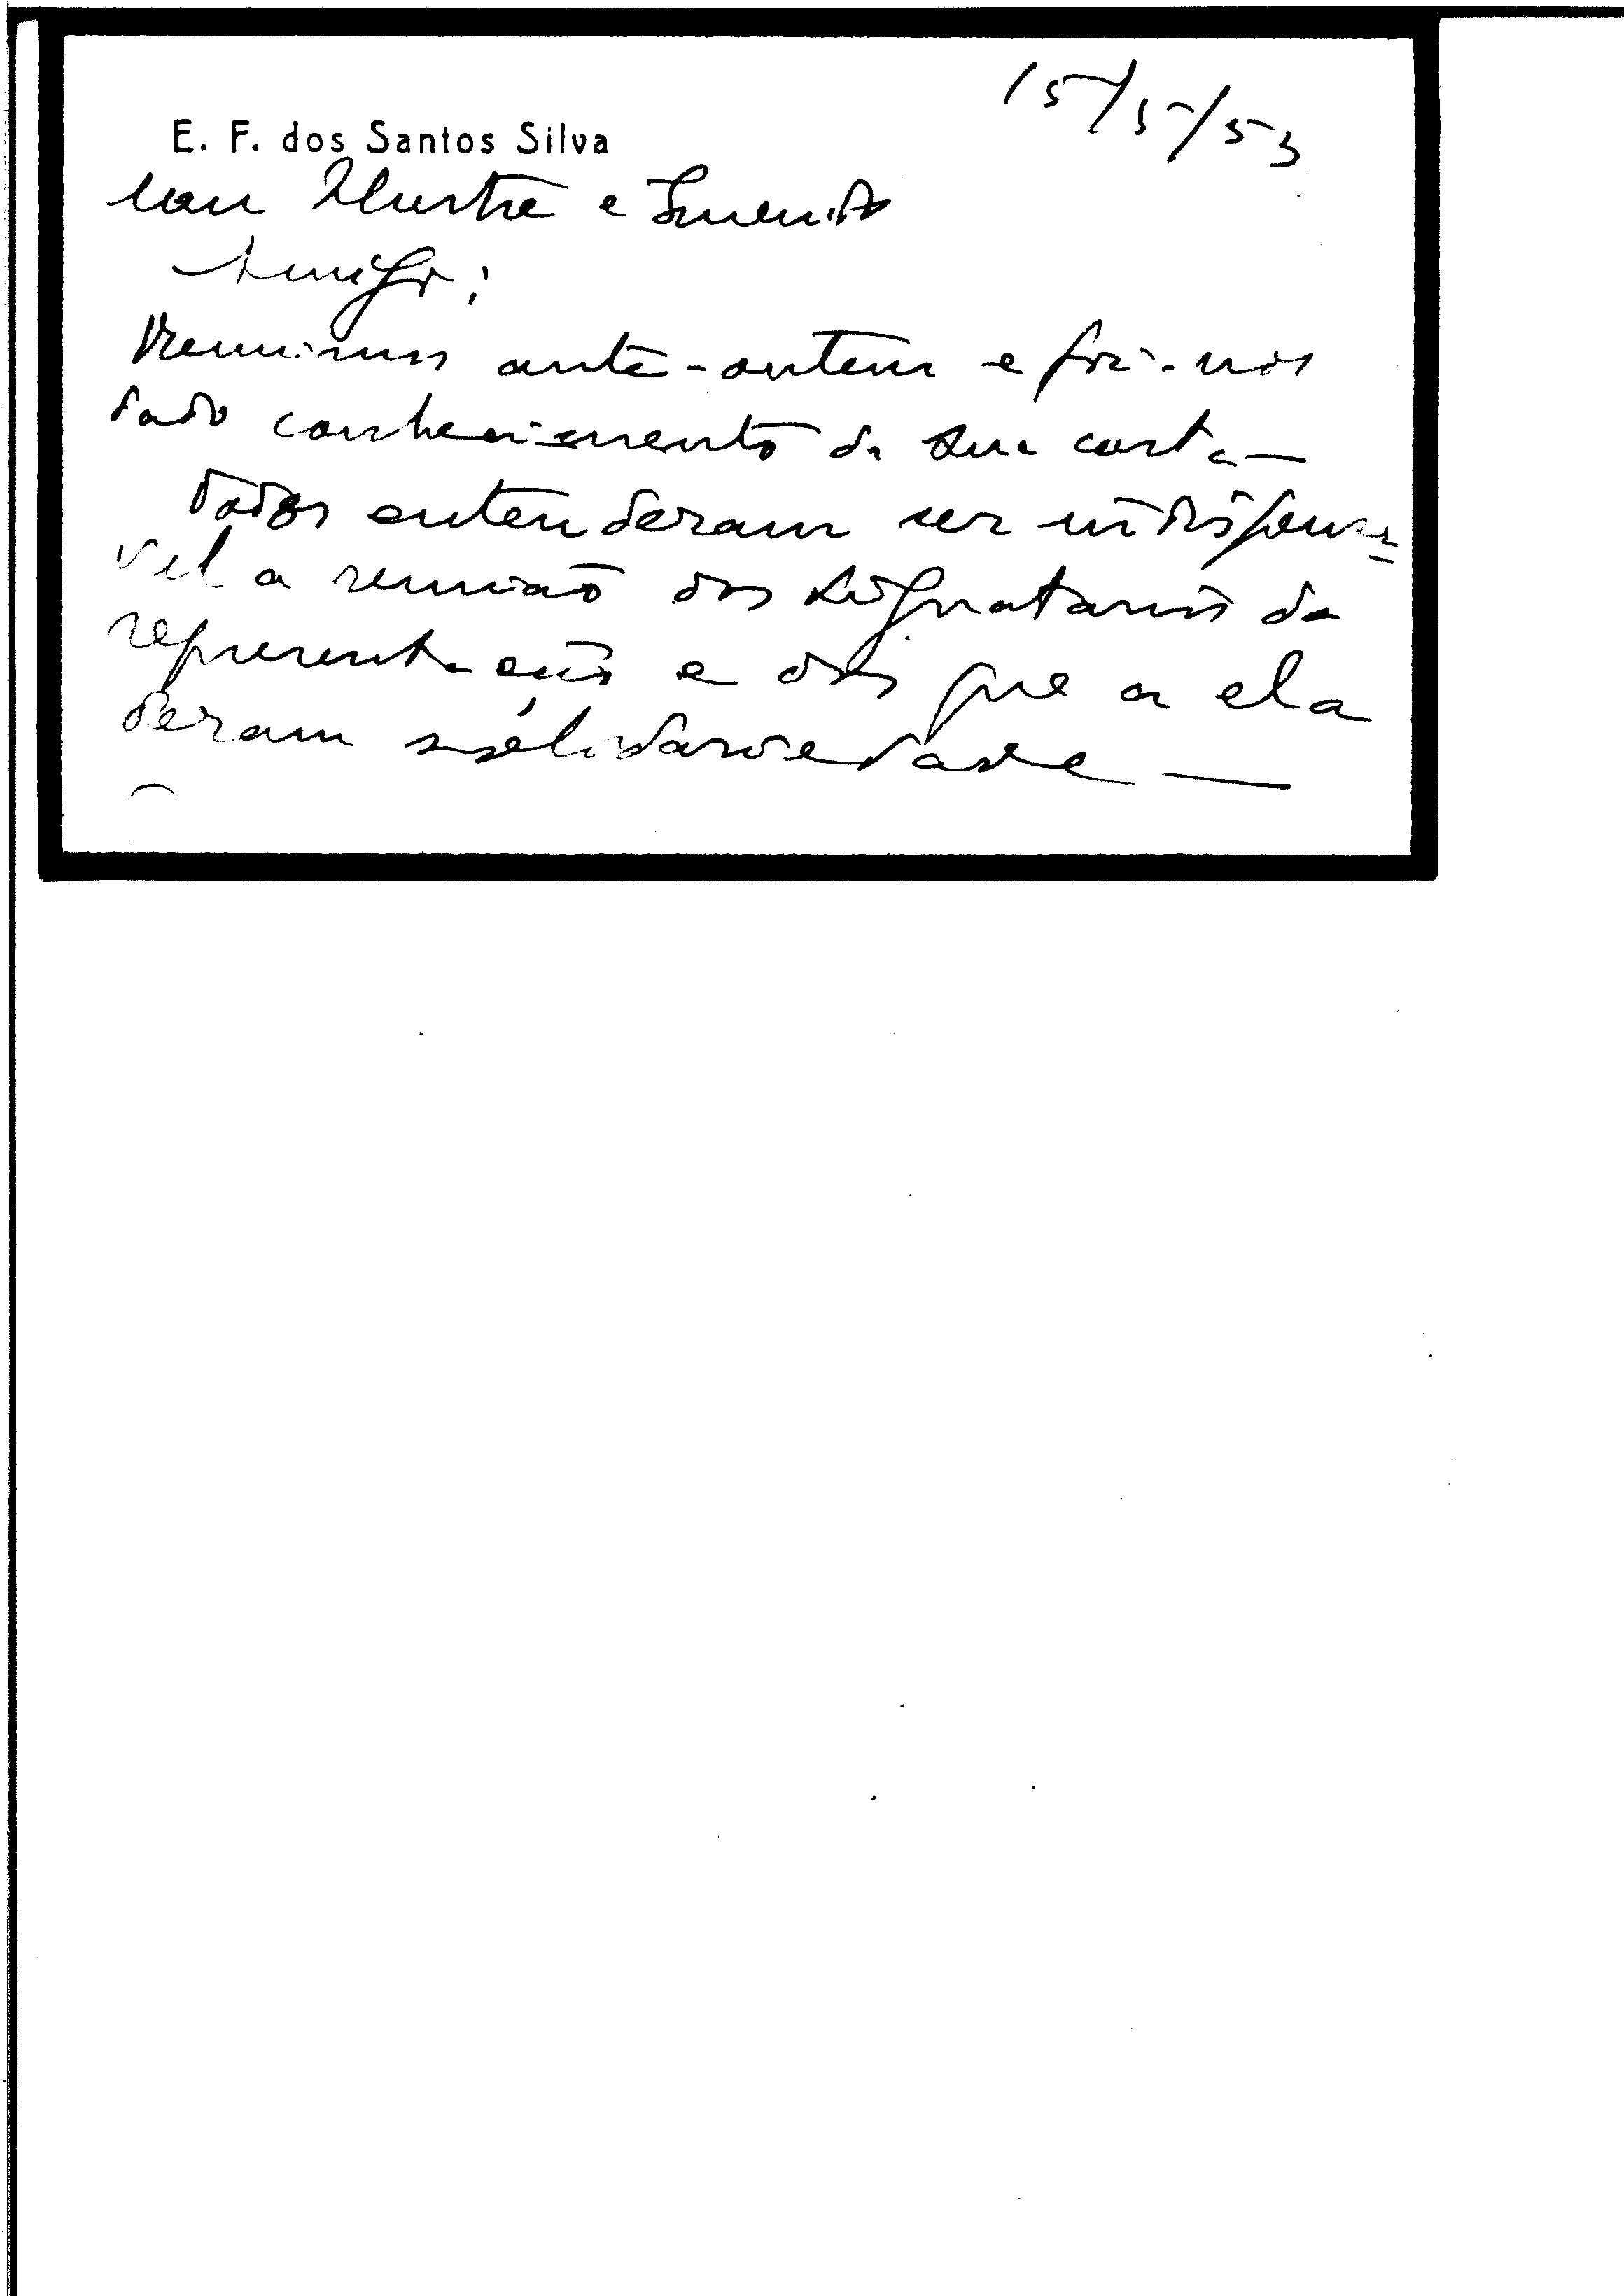 15/5/53
E. F. dos Santos Silva
Meu Ilustre e Emerito
Amigo:
Reunimos ante-ontem e foi-nos
dado conhecimento da sua carta—
Todos entenderam ser indispensa-
vel a reunião dos signatarios da
representação e dos que a ela
deram solidariedade —